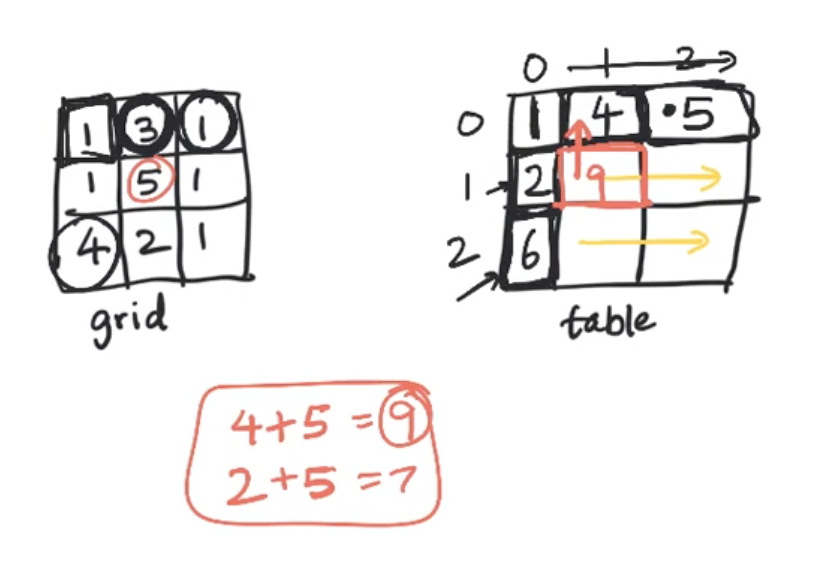 1 3 1
1 5 1
4 2 1
grid
0 1 2
0 1 4 5
1 2 9
2 6
table
4+5=9
2+5=7